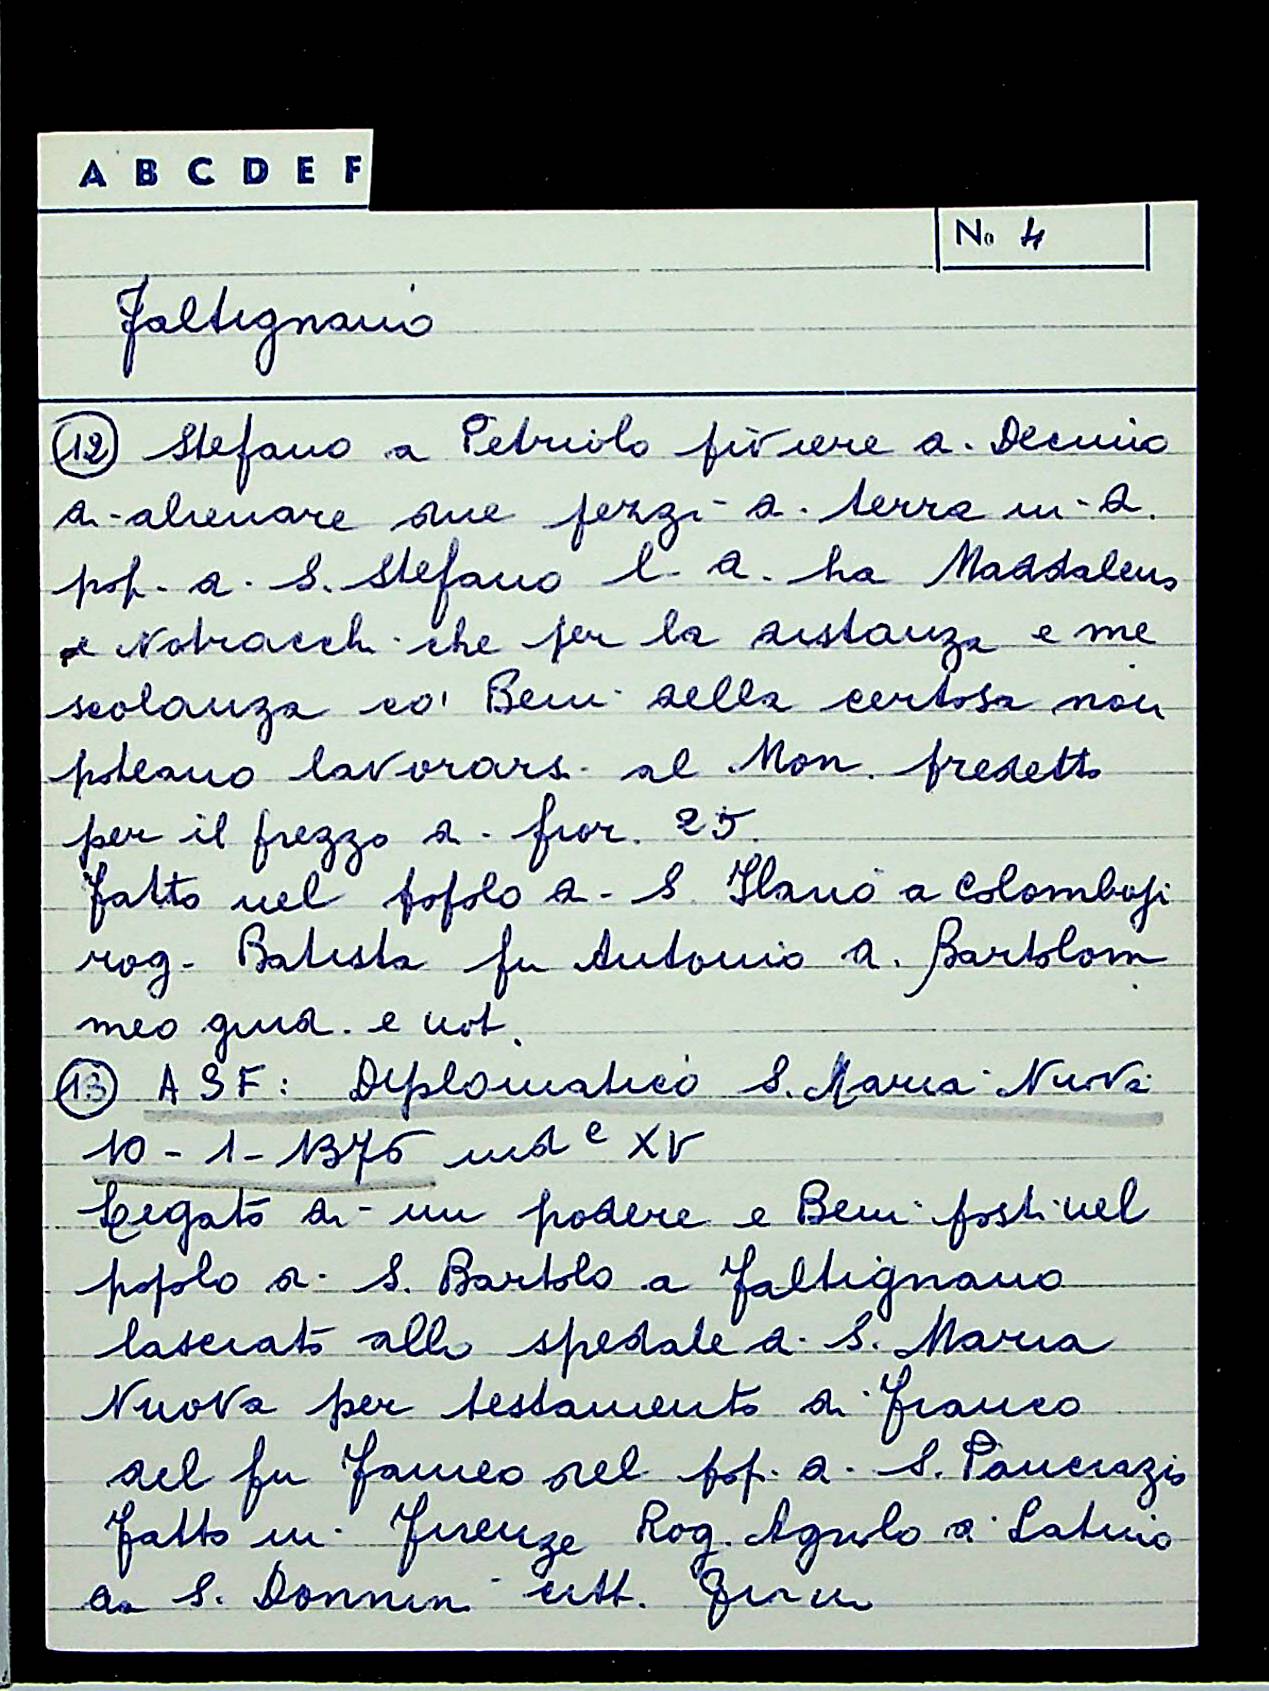 A B C D E F
No 4
Faltignano
12 Stefano a Petriolo piviere di Decimo
di alienare due pezzi di terra in d.
pop. di S. Stefano l. d. ha Maddalena
e Notracch. che per la distanza e me
scolanza co' Beni della certosa non
poteano lavorarsi al Mon. predetto
per il prezzo di fior. 25.
Fatto nel popolo di S. Ilario a Colombaji
rog. Batista fu Antonio di Bartolom
meo giud. e not.
13 ASF: Diplomatico S. Maria Nuova
10-1-1376 ind e XV
Legato di un podere e Beni posti nel
popolo di S. Bartolo a Faltignano
lasciato allo spedale di S. Maria
Nuova per testamento di Franco
del fu del pop. di S. Pancrazio
Fatto in Firenze Rog. Agnolo di Latino
da S. Donnin citt. Fior